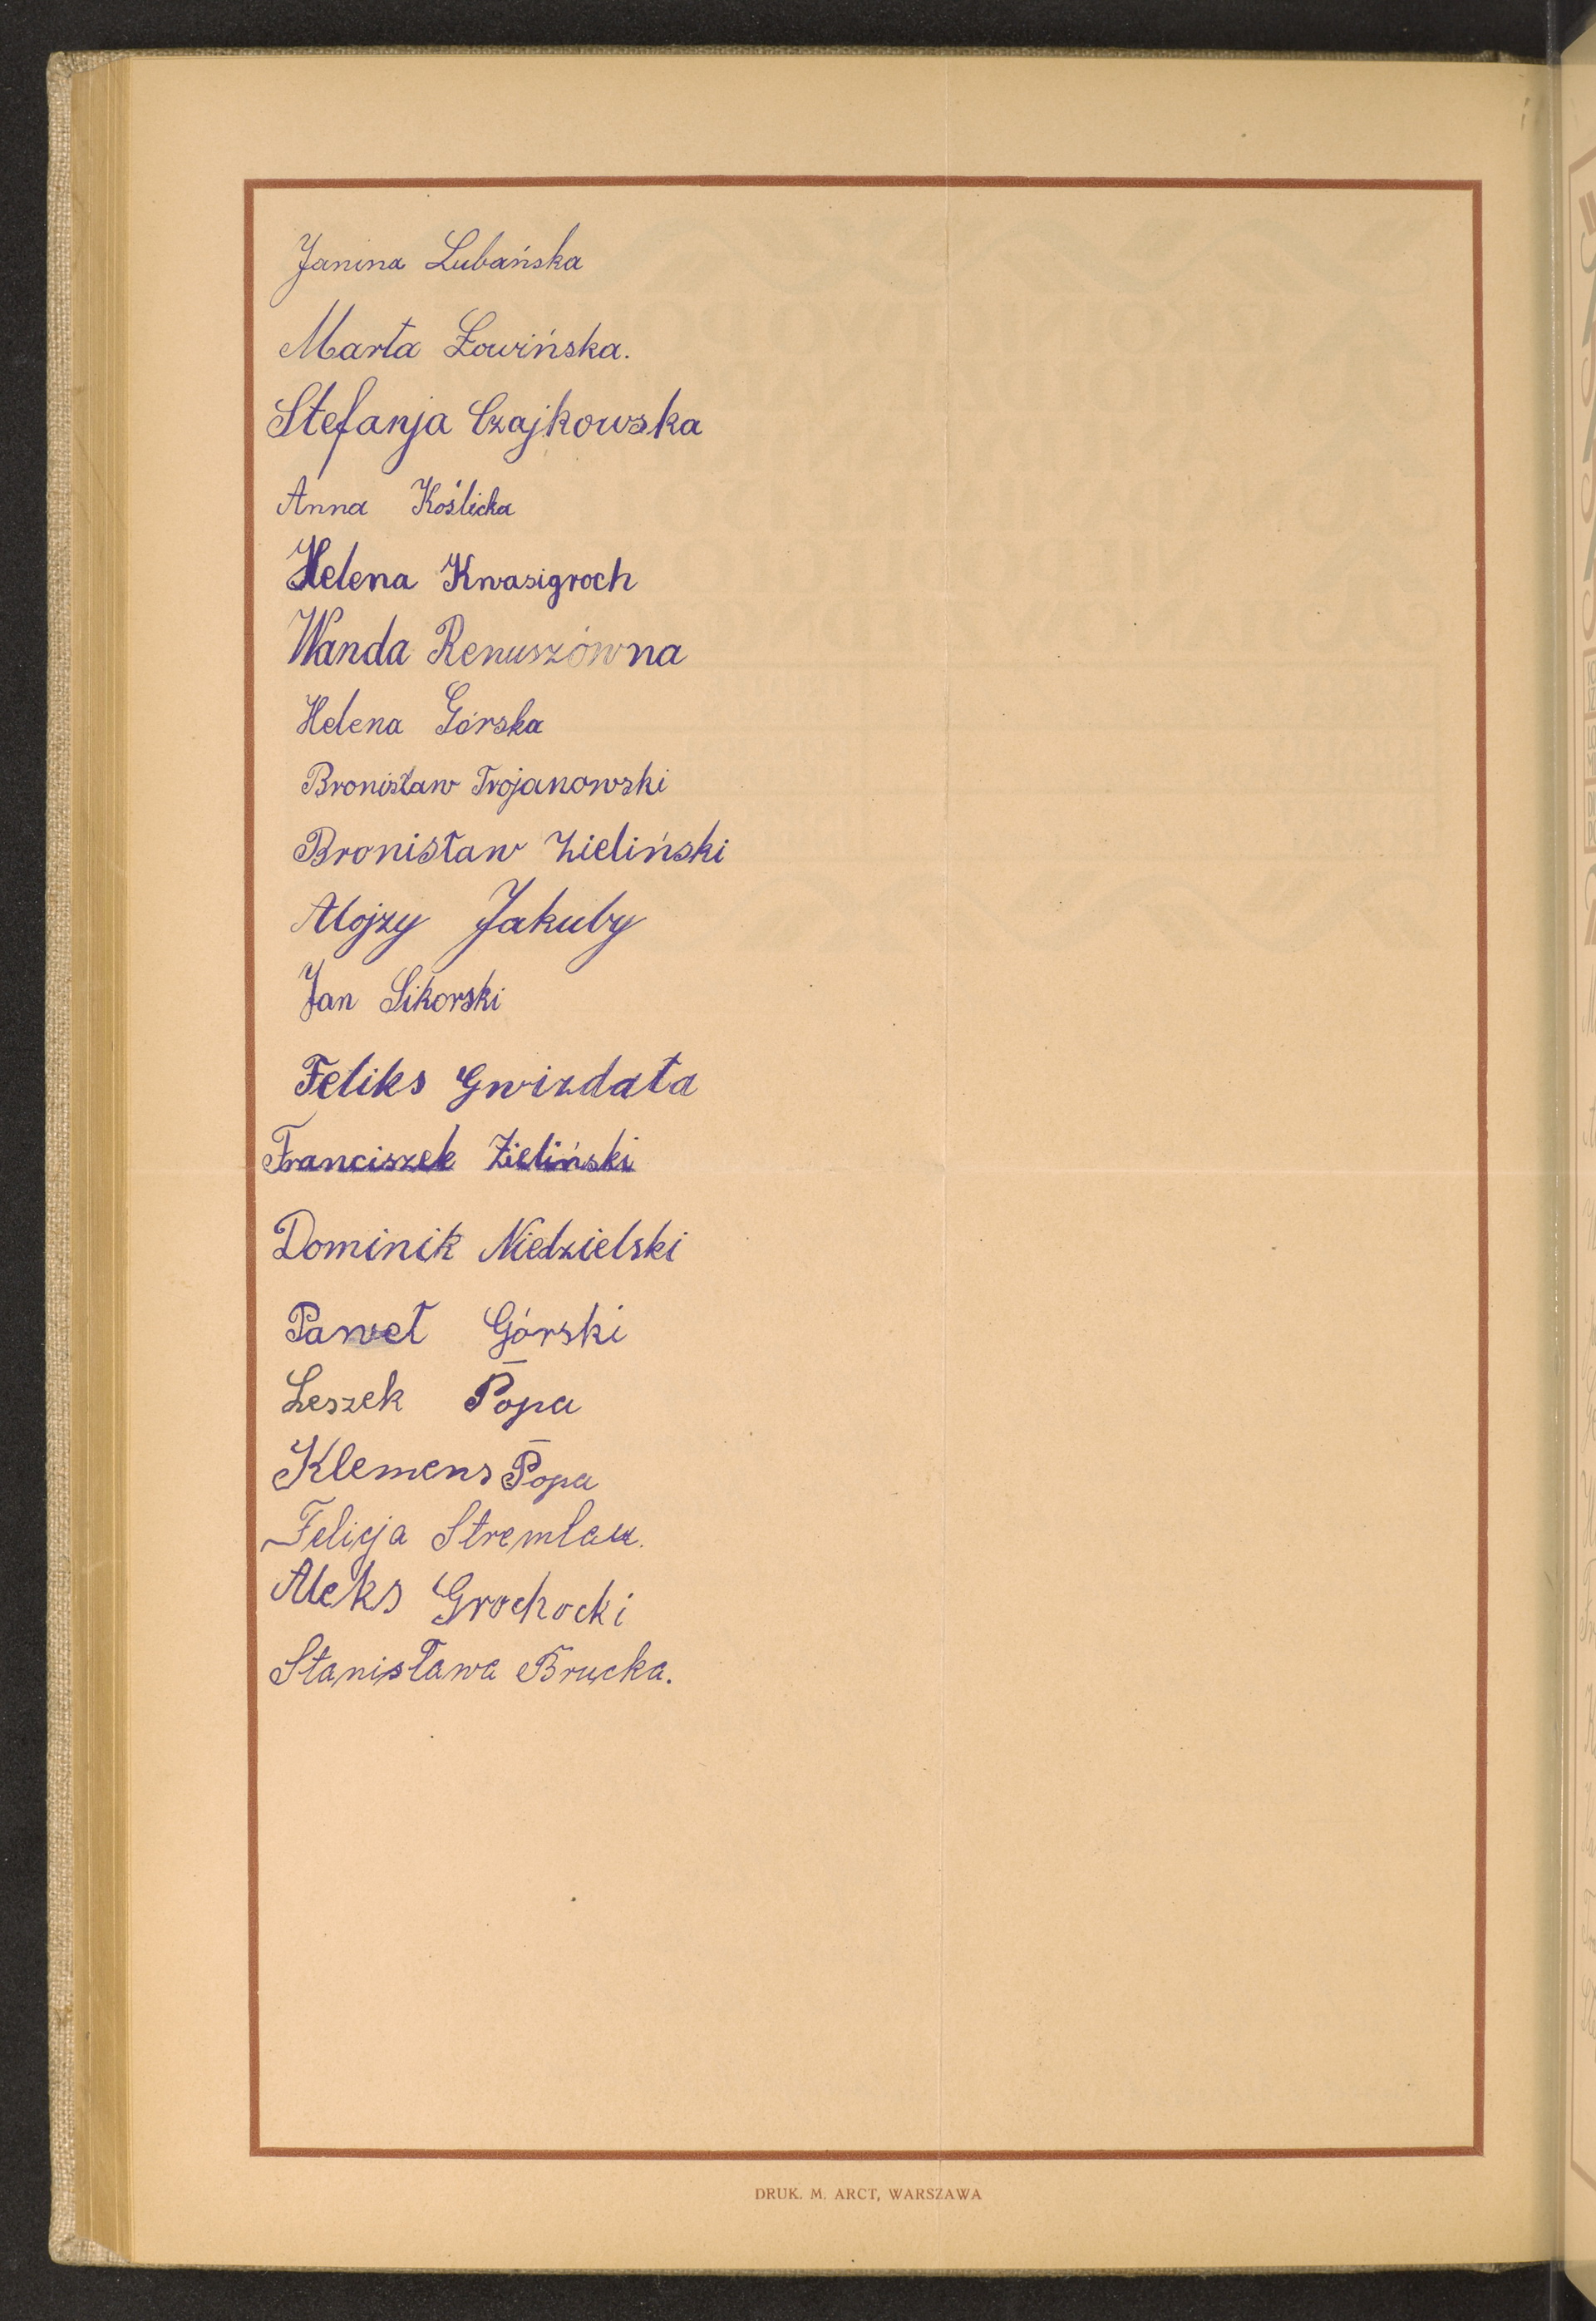 Janina Lubańska
Marta Łowińska.
Stefanja Czajkowska
Anna Koślicka
Helena Kwasigroch
Wanda Renuszówna
Helena Górska
Bronisław Trojanowski
Bronisław Zieliński
Alojzy Jakuby
Jan Sikorski
Feliks Gwizdała
Franciszek Zieliński
Dominik Niedzielski
Paweł Górski
Leszek Popa
Klemens Popa
Felicja Stremlau.
Aleks Grochocki
Stanisława Brucka.
DRUK. M. ARCT, WARSZAWA